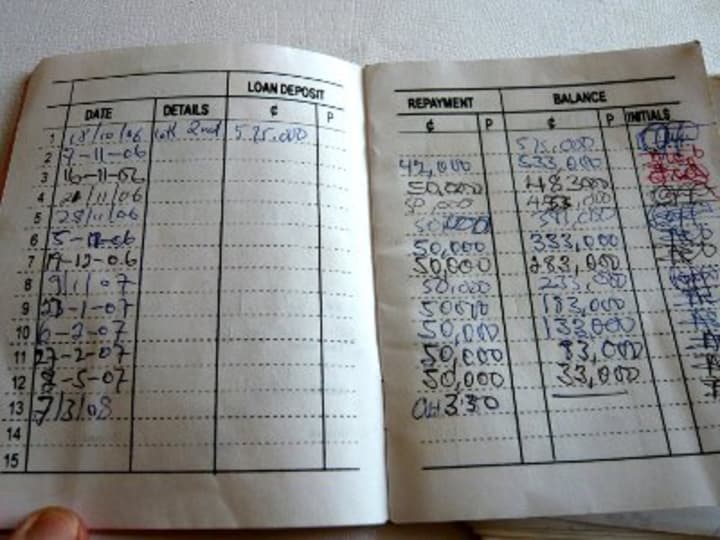 LOAN DEPOSIT
DATE DETAILS ¢ P
REPAYMENT BALANCE INITIALS
¢ P ¢ P
1 18/10/06 2nd 575.000 575.000
2 7-11-06 42,000 533,000
3 16-11-06 50,000 483,000
4 /11/06
5 28/11/06 50,000
6 5- -06 50,000 333,000
7 19-12-06 50,000 283,000
8 9/1/07 50,000 233,000
9 23-1-07 50,000 183,000
10 6-2-07 50,000 133,000
11 27-2-07 50,000 83,000
12 -5-07 50,000 33,000
13 7/3/08 3.30
14
15